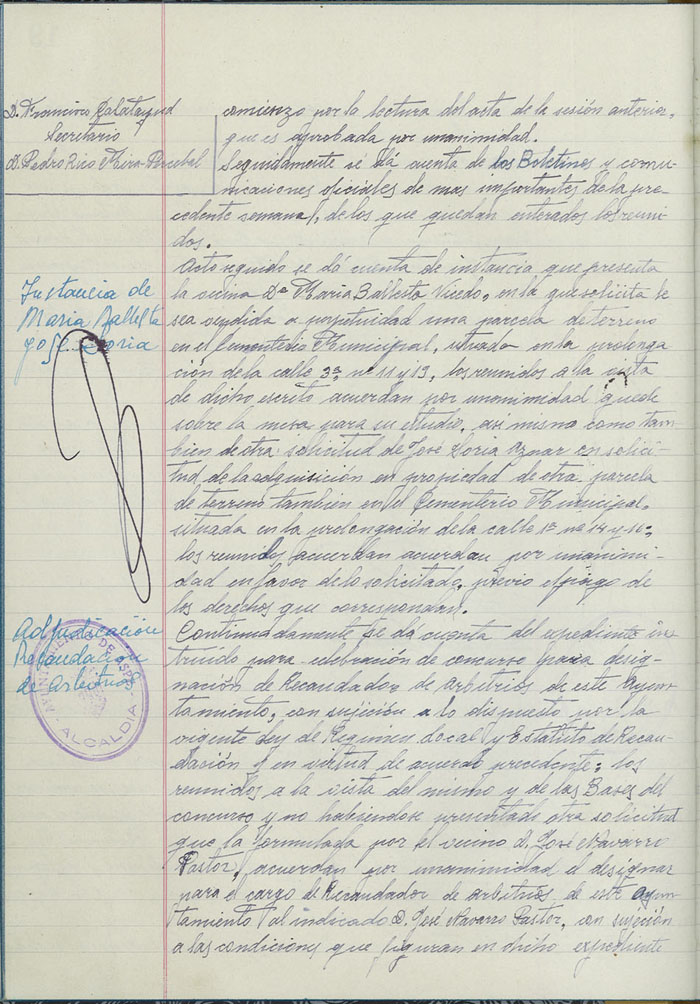 D. Francisco Calatayud
Secretario
D. Pedro Rico Mira-Percebal
comienzo por la lectura del acta de la sesión anterior,
que es aprobada por unanimidad.
Seguidamente se dá cuenta de los Boletines y comu-
nicaciones oficiales de mas importantes de la pre-
cedente semana, de los que quedan enterados los reuni-
dos.
Instancia de
Maria Ballesta
José Soria
Acto seguido se dá cuenta de instancia que presenta
la vecina Dª Maria Ballesta Vicedo, en la que solicita le
sea vendida a perpetuidad una parcela de terreno
en el Cementerio Municipal, situado en la prolonga
ción de la calle 3ª nº 11 y 13, los reunidos a la vista
de dicho escrito acuerdan por unanimidad quede
sobre la mesa para su estudio, asi mismo como tam
bien de otra solicitud de José Soria Aznar en solici-
tud de la adquisición en propiedad de otra parcela
de terreno tambien en el Cementerio Municipal,
situada en la prolongación de la calle 1ª nº 14 y 16;
los reunidos acuerdan acuerdan por unanimi-
dad en favor de lo solicitado, previo el pago de
los derechos que correspondan.
Adjudicación
Recaudación
de arbitrios
AYUNTAMIENTO DE
ALCALDIA
Continuadamente se dá cuenta del expediente ins
truido para celebración de concurso para desig-
nación de Recaudador de Arbitrios de este Ayun-
tamiento, con sujición a lo dispuesto por la
vigente Ley de Regimen Local y Estatuto de Recau-
dación y en virtud de acuerdo precedente; los
reunidos a la vista del mismo y de las Bases del
concurso y no habiendose presentado otra solicitud
que la formulada por el vecino D. José Navarro
Pastor, acuerdan por unanimidad el designar
para el cargo de Recaudador de Arbitrios de este Ayun
tamiento al indicado D. José Navarro Pastor, con sujición
a las condiciones que figuran en dicho expediente